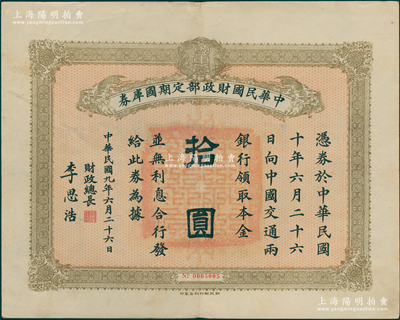 上海陽明拍賣
券庫國期定部政財國民華中
憑券於中華民國
十年六月二十六
日向中國交通兩
銀行領取本金
拾圓
並無利息合行發
給此券為據
財政總長
李思浩
中華民國九年六月二十六日
No 0005005
上海陽明拍賣
www.ymauction.com